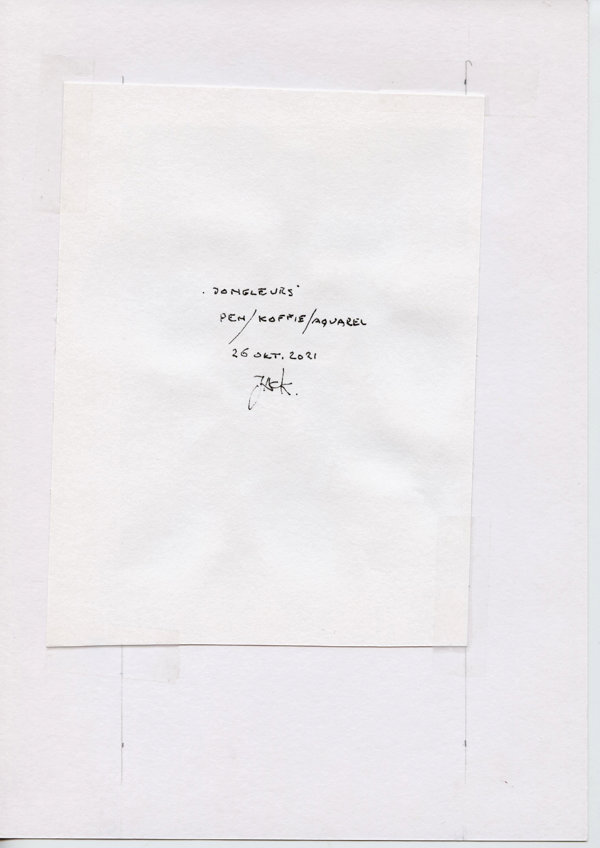 'JONGLEURS'
PEN/KOFFIE/AQUAREL
26 OKT. 2021
Jack.